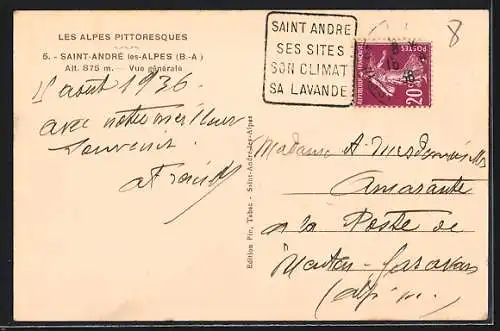 LES ALPES PITTORESQUES
5. - SAINT-ANDRÉ les-ALPES (B.-A)
Alt. 875 m. - Vue générale
août 1936
avec notre meilleur
souvenir
Edition Pic, Tabac - Saint-André-des-Alpes
SAINT ANDRE
SES SITES
SON CLIMAT
SA LAVANDE
POSTES
REPUBLIQUE FRANÇAISE
20c
8
Madame &
Amarante
à la Poste de
Menton-Garavan
(Alp. m.)